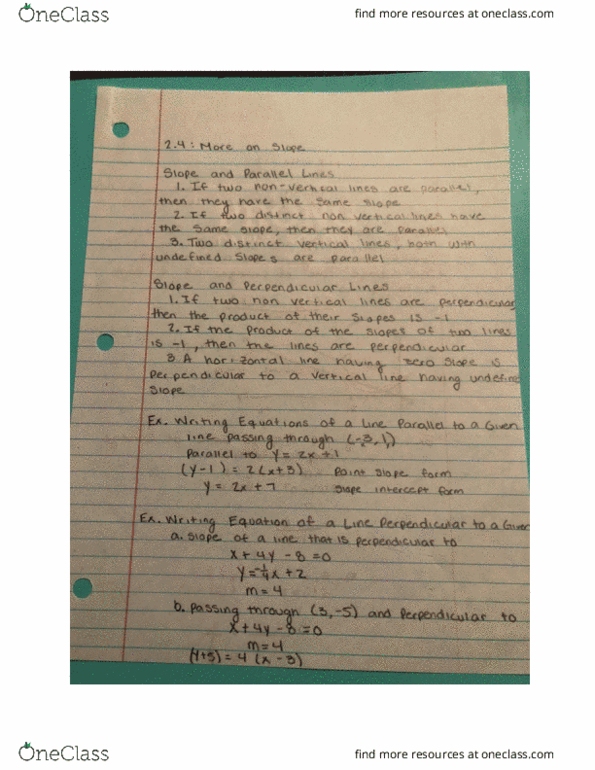 OneClass
find more resources at oneclass.com
2.4: More on Slope
Slope and Parallel Lines
1. If two non-vertical lines are parallel,
then they have the same slope
2. If two distinct non vertical lines have
the same slope, then they are parallel
3. Two distinct vertical lines, both with
undefined slopes are parallel
Slope and Perpendicular Lines
1. If two non vertical lines are perpendicular
then the product of their slopes is -1
2. If the product of the slopes of two lines
is -1, then the lines are perpendicular
3. A horizontal line having zero slope is
perpendicular to a vertical line having undefine
slope
Ex. Writing Equations of a Line Parallel to a Given
line passing through (-3, 1)
Parallel to y = 2x+1
(y-1) = 2(x+3) Point slope form
y = 2x+7 Slope intercept form
Ex. Writing Equation of a Line Perpendicular to a Given
a. Slope of a line that is perpendicular to
x+4y-8=0
y=-1/4x+2
m=4
b. Passing through (3,-5) and Perpendicular to
x+4y-8=0
m=4
(y+5)=4(x-3)
OneClass
find more resources at oneclass.com